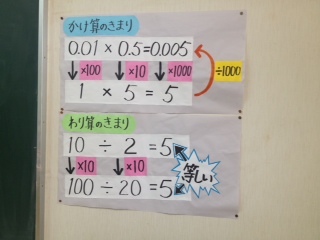 かけ算のきまり
0.01 × 0.5=0.005
↓×100 ↓×10 ↓×1000 ÷1000
1 × 5 = 5
わり算のきまり
10 ÷ 2 =5
↓×10 ↓×10 等しい
100 ÷ 20 =5